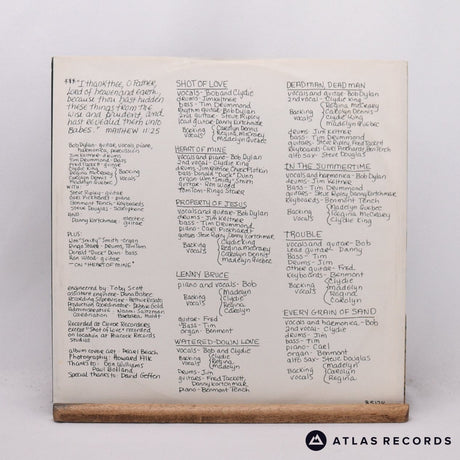 "I thank thee, O Father,
Lord of heaven and earth,
because thou hast hidden
these things from the
wise and prudent, and
hast revealed them unto
Babes." MATTHEW 11:25
Bob Dylan - guitar, vocals, piano,
harmonica, percussion
Jim Keltner - drums
Tim Drummond - bass
WITH:
Steve Ripley - guitar
Carl Pickhardt - piano
Steve Douglas - saxophone
AND:
Danny Kortchmar - electric
guitar
PLUS:
"Smitty" Smith - organ
Donald "Duck" Dunn - bass
Ron Wood - guitar
- ON "HEART OF MINE"
engineered by Toby Scott
Recorded at Clover Recorders
except "Shot of Love" recorded
on location at Peacock Records
studios
album cover art - Pearl Beach
Photography - Howard Alk
Thanks to - Gea Williams
Paul Bolland
Special thanks to: David Geffen
SHOT OF LOVE
vocals - Bob and Clydie
drums - Jim Keltner
bass - Tim Drummond
Rhythm guitar - Bob Dylan
2nd guitar - Steve Ripley
lead guitar - Danny Kortchmar
Backing
vocals
Carolyn Dennis
Regina McCreary
Madelyn Quebec
HEART OF MINE
vocals and piano - Bob Dylan
2nd vocal - Clydie King
bass - Donald "Duck" Dunn
guitar - Ron Wood
Tom Tom - Ringo Starr
PROPERTY OF JESUS
vocals and guitar - Bob Dylan
drums - Jim Keltner
bass - Tim Drummond
piano - Carl Pickhardt
guitars - Steve Ripley, Danny Kortchmar
Backing
vocals
Clydie King
Regina McCreary
Carolyn Dennis
Madelyn Quebec
LENNY BRUCE
piano and vocals - Bob
Backing
vocals
Madelyn
Clydie
Regina
Carolyn
guitar - Fred
Bass - Tim
drums - Jim
organ - Benmont
WATERED-DOWN LOVE
Vocals - Bob and Clydie
Backing
vocals
Clydie
Regina
Madelyn
drums - Jim
Bass - Tim
guitars - Fred Tackett,
Danny Kortchmar
piano - Benmont Tench
DEAD MAN, DEAD MAN
vocals and guitar - Bob Dylan
2nd vocal - Clydie King
Backing
vocals
Regina McCreary
Carolyn Dennis
Clydie King
Madelyn Quebec
drums - Jim Keltner
bass - Tim Drummond
guitars - Steve Ripley, Fred Tackett
Keyboards - Carl Pickhardt, Ben Tench
alto sax - Steve Douglas
IN THE SUMMERTIME
vocals and harmonica - Bob Dylan
drums - Jim Keltner
Bass - Tim Drummond
guitars - Steve Ripley, Danny Kortchmar
Keyboards - Benmont Tench
Backing
vocals
Madelyn Quebec
Regina McCreary
Clydie King
TROUBLE
Vocals and guitar - Bob
Lead guitar - Danny
Bass - Tim
drums - Jim
other guitar - Fred
Backing
vocals
Madelyn
Clydie
Regina
Carolyn
EVERY GRAIN OF SAND
vocals and harmonica - Bob
2nd vocal - Clydie
drums - Jim
Bass - Tim
piano - Carl
organ - Benmont
alto sax - Steve Douglas
Backing
vocals
Madelyn
Carolyn
Regina
85178
ATLAS RECORDS